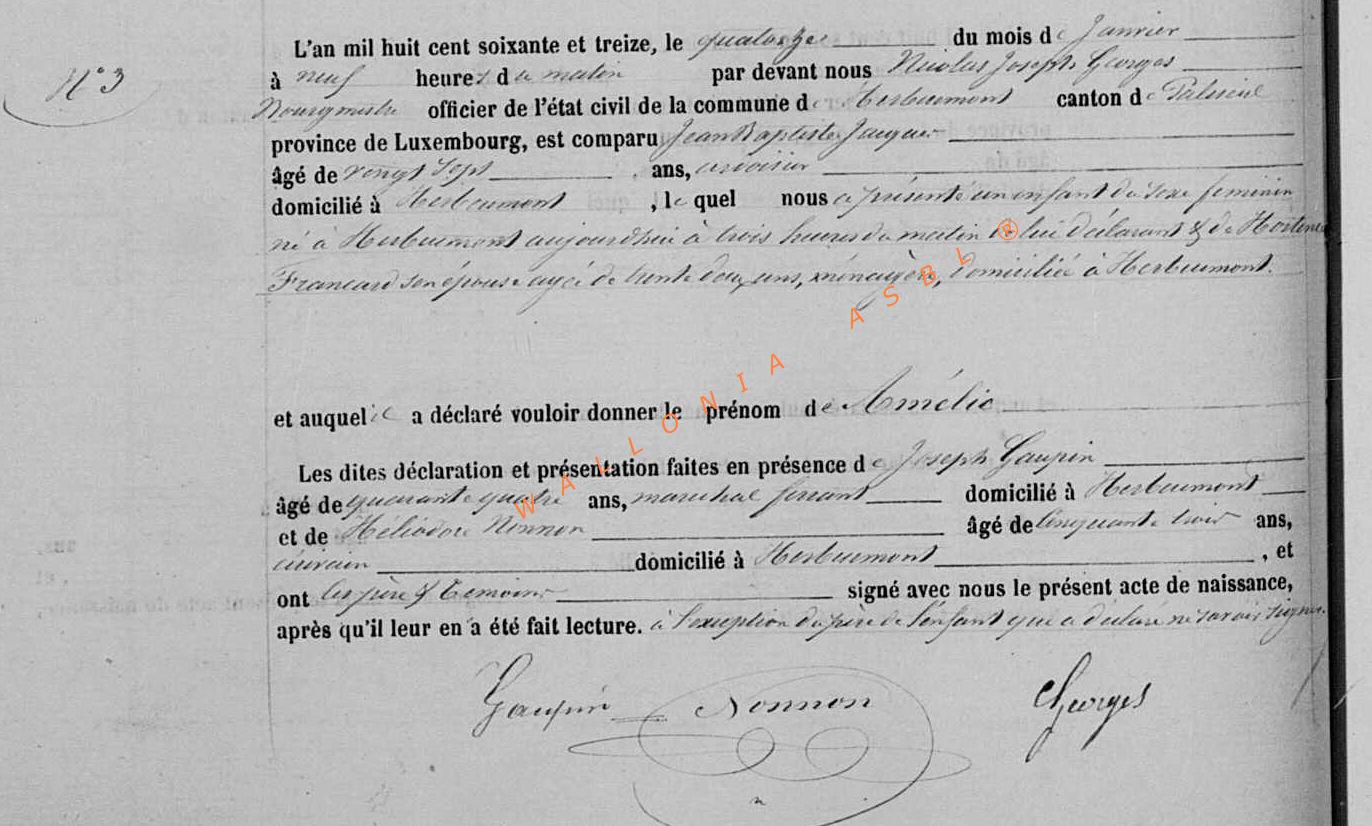 N° 3
L'an mil huit cent soixante et treize, le quatorze du mois de Janvier
à neuf heures du matin par devant nous Nicolas Joseph Georges
Bourgmestre officier de l'état civil de la commune de Herbeumont canton de Paliseul
province de Luxembourg, est comparu Jean Baptiste Jacques
âgé de vingt sept ans, ardoisier
domicilié à Herbeumont, le quel nous a présenté un enfant du sexe féminin
né à Herbeumont aujourdhui à trois heures du matin de lui déclarant & de Hortense
Francard son épouse agée de trente deux ans, ménagère, domiciliée à Herbeumont.
et auquel il a déclaré vouloir donner le prénom de Amélie
Les dites déclaration et présentation faites en présence de Joseph Gaupin
âgé de quarante quatre ans, maréchal ferrant domicilié à Herbeumont
et de Héliodore Nonnon âgé de cinquante trois ans,
domicilié à Herbeumont, et
ont les père & témoins signé avec nous le présent acte de naissance,
après qu'il leur en a été fait lecture. à l'exception du père de l'enfant qui a déclaré ne savoir signer.
Gaupin Nonnon Georges
WALLONIA ASBL ®